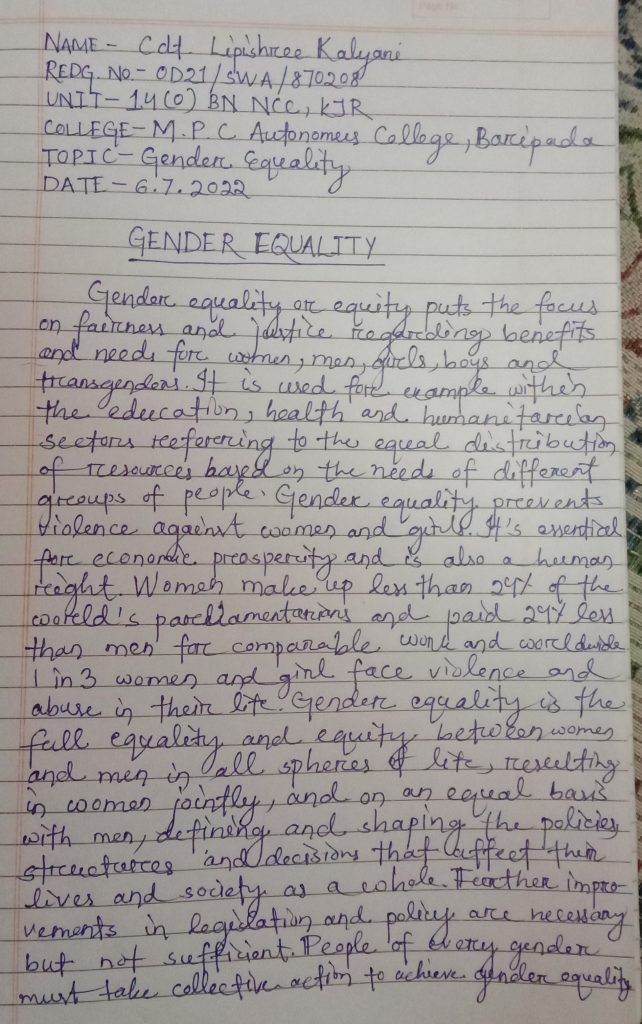 NAME - Cdt. Lipishree Kalyani
REDG. NO. - OD21/SWA/870208
UNIT - 14(O) BN NCC, KJR
COLLEGE - M.P.C Autonomous College, Baripada
TOPIC - Gender Equality
DATE - 6.7.2022
GENDER EQUALITY
Gender equality or equity puts the focus
on fairness and justice regarding benefits
and needs for women, men, girls, boys and
transgenders. It is used for example within
the education, health and humanitarian
sectors referring to the equal distribution
of resources based on the needs of different
groups of people. Gender equality prevents
violence against women and girls. It's essential
for economic prosperity and is also a human
right. Women make up less than 24% of the
world's parliamentarians and paid 24% less
than men for comparable work and worldwide
1 in 3 women and girl face violence and
abuse in their life. Gender equality is the
full equality and equity between women
and men in all spheres of life, resulting
in women jointly, and on an equal basis
with men, defining and shaping the policies,
structures and decisions that affect their
lives and society as a whole. Further impro-
vements in legislation and policy are necessary
but not sufficient. People of every gender
must take collective action to achieve gender equality